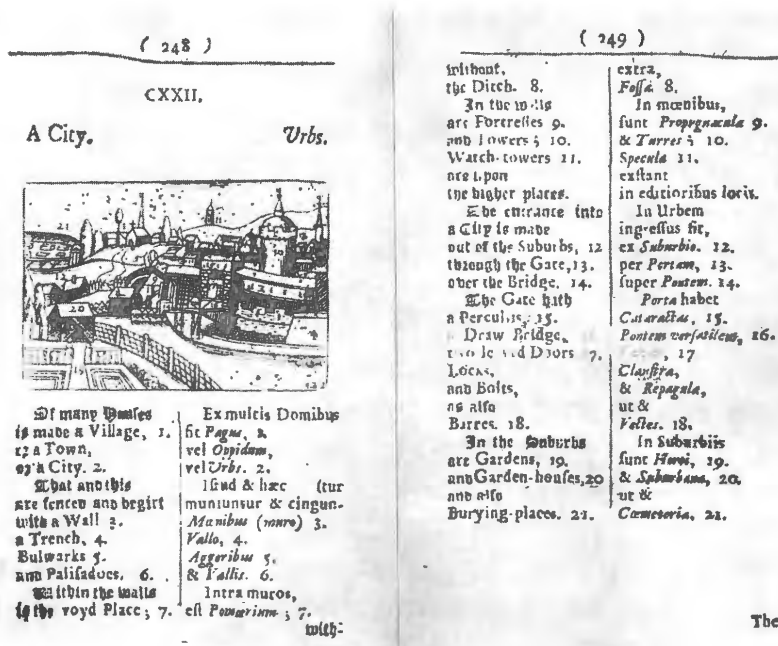 ( 248 )
CXXII.
A City.
Urbs.
Of many Houses
is made a Village, 1.
or a Town,
or a City. 2.
That and this
are fenced and begirt
with a Wall 3.
a Trench, 4.
Bulwarks 5.
and Palisadoes. 6.
Within the walls
is the voyd Place; 7.
Ex multis Domibus
fit Pagus, 1.
vel Oppidum,
vel Urbs. 2.
Istud & hæc (tur
muniuntur & cingun-
Mœnibus (muro) 3.
Vallo, 4.
Aggeribus 5.
& Vallis. 6.
Intra muros,
est Pomœrium; 7.
with-
( 249 )
without,
the Ditch. 8.
In the walls
are Fortresses 9.
and Towers; 10.
Watch-towers 11.
are upon
the higher places.
The entrance into
a City is made
out of the Suburbs, 12
through the Gate, 13.
over the Bridge. 14.
The Gate hath
a Perculus, 15.
Draw Bridge,
Doors 7.
Locks,
and Bolts,
as also
Barres. 18.
In the Suburbs
are Gardens, 19.
and Garden-houses, 20
and also
Burying-places. 21.
extra,
Fossa. 8.
In mœnibus,
sunt Propugnacula 9.
& Turres; 10.
Specula 11.
exstant
in editioribus locis.
In Urbem
ingressus fit,
ex Suburbio. 12.
per Portam, 13.
super Pontem. 14.
Porta habet
Cataractas, 15.
Pontem versatilem, 16.
, 17
Claustra,
& Repagula,
ut &
Vectes. 18.
In Suburbiis
sunt Horti, 19.
& Suburbana, 20.
ut &
Cœmeteria. 21.
The